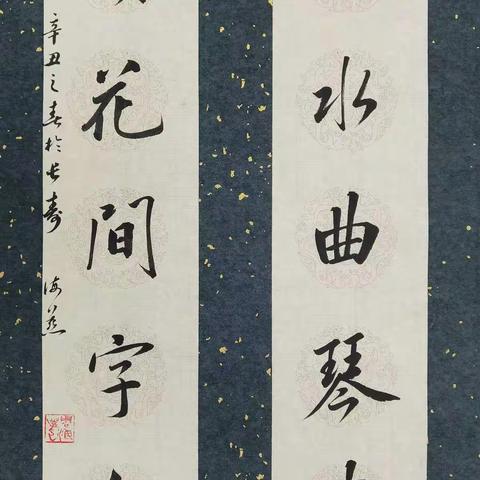 水曲琴
花間字
辛丑之春於长寿 海燕